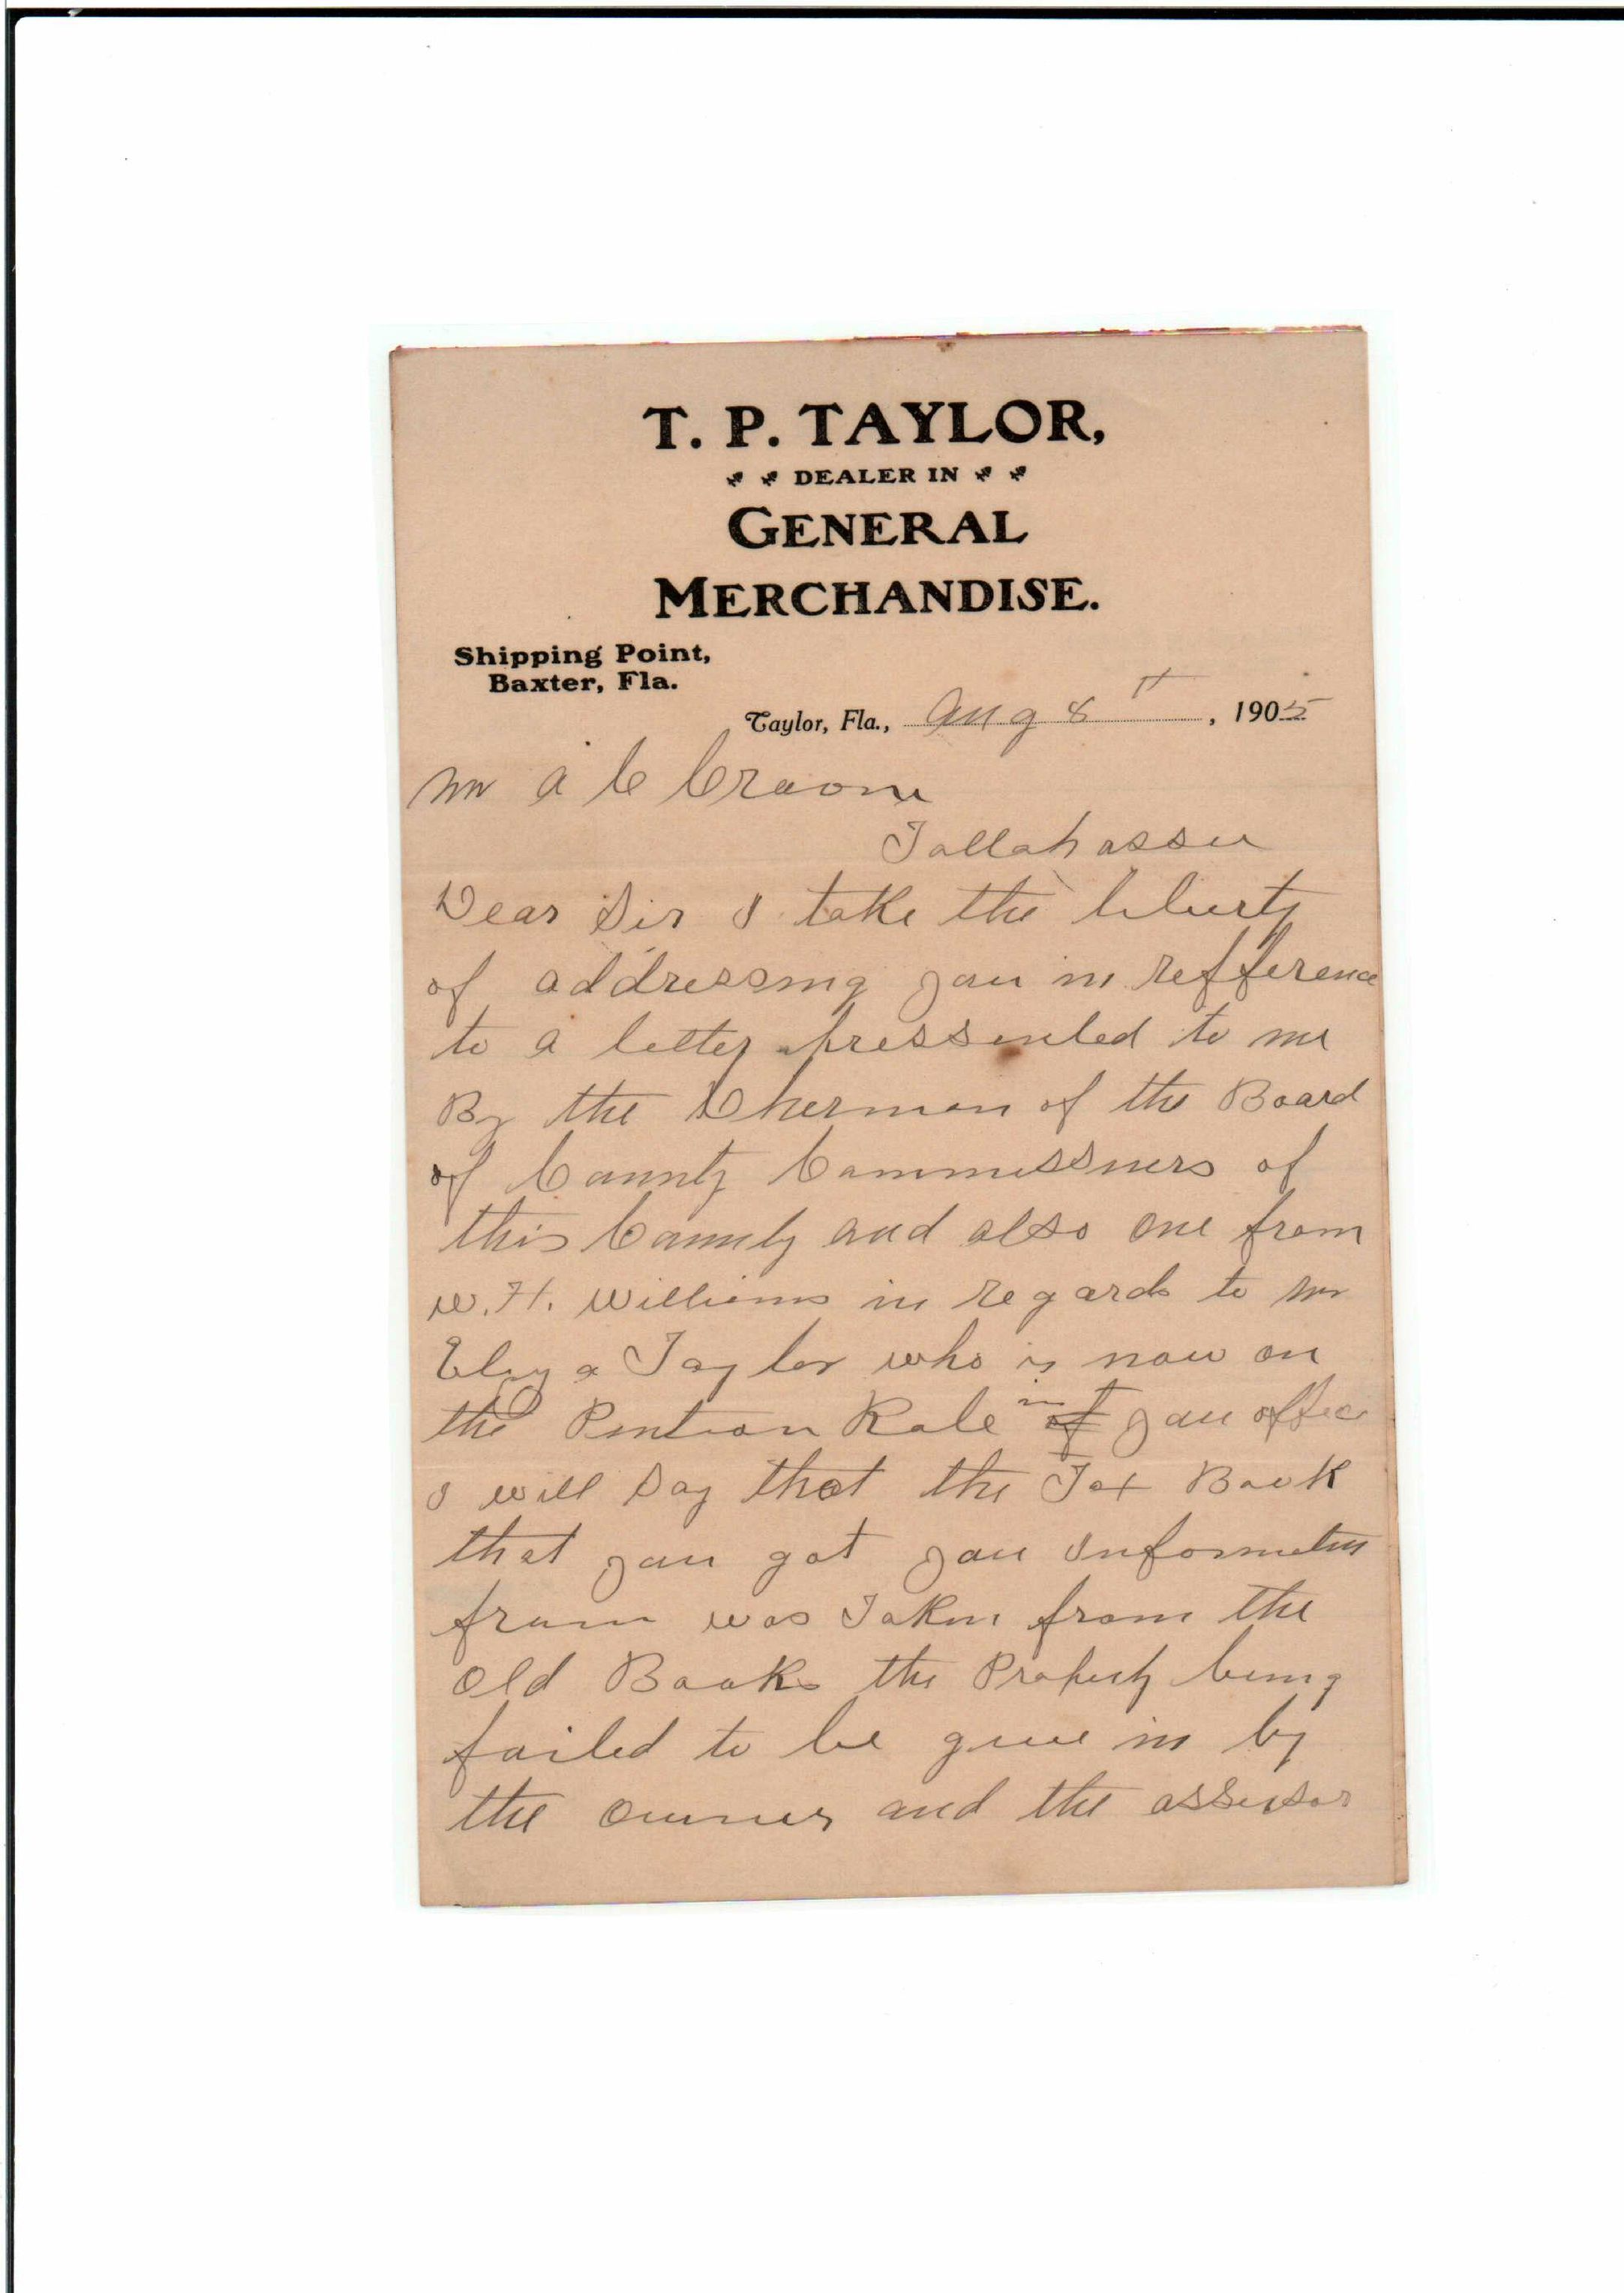 T. P. TAYLOR,
DEALER IN
GENERAL
MERCHANDISE.
Shipping Point,
Baxter, Fla.
Taylor, Fla., Aug 8th, 1905
Mr A C Croom
Tallahassee
Dear Sir I take the liberty
of addressing you in refference
to a letter pressented to me
By the Cherman of the Board
of County Commissners of
this County and also one from
W. H. Williams in regards to Mr
Taylor who is now on
the Pention Role in of you office
I will Say that the Tax Book
that you got you information
from was Taken from the
Old Books the Property being
failed to be give in by
the owner and the assessor